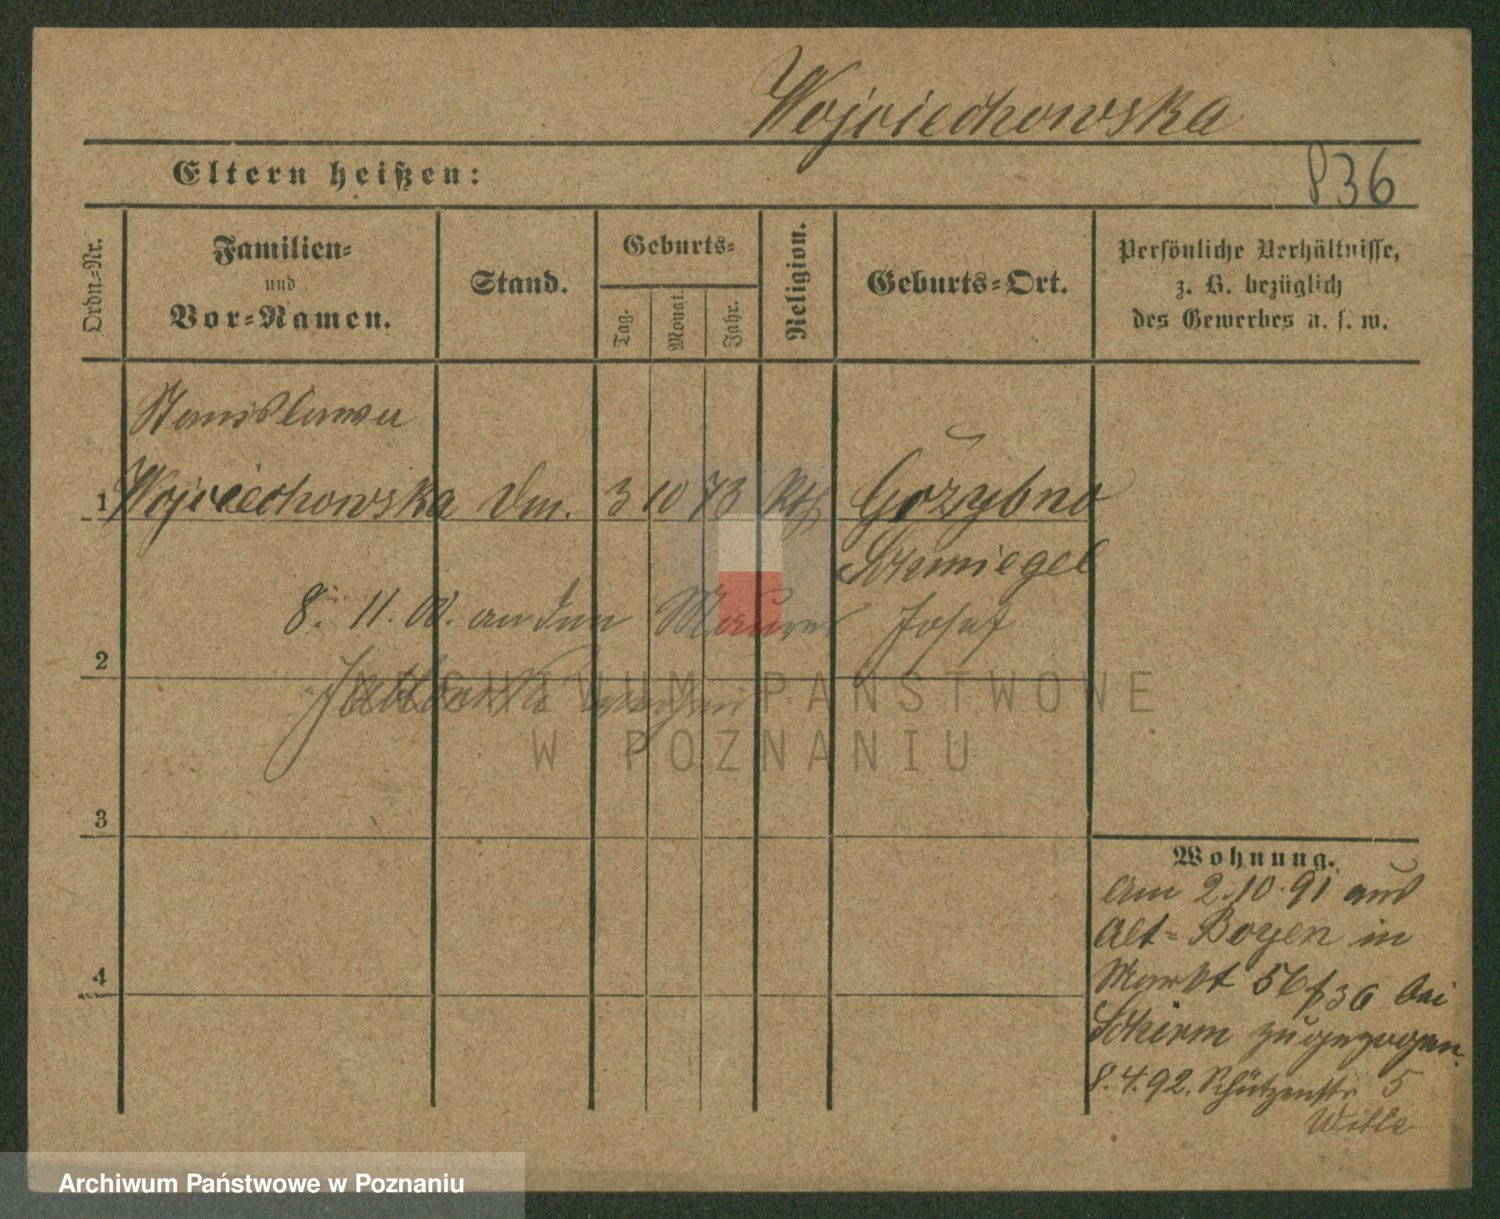 Wojciechowska
Eltern heißen:
836
Ordn.-Nr.
Familien-
und
Vor-Namen.
Stand.
Geburts-
Tag.
Monat.
Jahr.
Religion.
Geburts-Ort.
Persönliche Verhältnisse,
z. B. bezüglich
des Gewerbes u. s. w.
Stanislawa
1 Wojciechowska Dm. 3 10 73 Kth
Schmiegel
8. 11. 00. an den Maurer Josef
2
ARCHIWUM PAŃSTWOWE
W POZNANIU
3
Wohnung.
Am 2.10.91 aus
Alt-Boyen in
4
Markt 56/36 bei
Schirm zugezogen.
8.4.92. Schützenstr 5
Witte
Archiwum Państwowe w Poznaniu